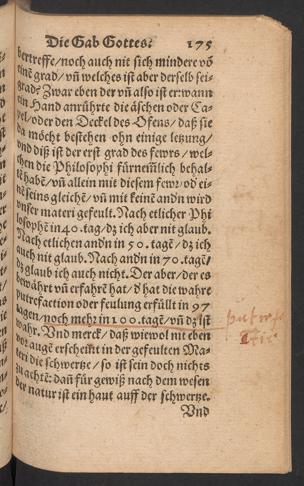 Die Gab Gottes. 175
bertreffe/noch auch nit sich mindere võ
einē grad/vñ welches ist aber derselb sel-
grad? Zwar eben der vñ also ist er: wann
ein Hand anrührte die äschen oder Ca-
pel/oder den Deckel des Ofens/daß sie
da möcht bestehen ohn einige letzung/
vnd diß ist der erst grad des fewrs/wel-
chen die Philosophi fürnemlich behal-
tē habē/vñ allein mit diesem fewr/oď ei-
nē seins gleichē/vñ mit keinē andn wird
vnser materi gefeult. Nach etlicher Phi
losophē in 40. tag/dz ich aber nit glaub.
Nach etlichen andn in 50. tagē/dz ich
auch nit glaub. Nach andn in 70. tagē/
dz glaub ich auch nicht. Der aber/der es
bewährt vñ erfahrē hat/ď hat die wahre
putrefaction oder feulung erfüllt in 97
tagen/noch mehr in 100. tagē/vñ dz ist
wahr. Vnd merck/daß wiewol mit eben
vor augē erscheint in der gefeulten Ma-
teri die schwertze/so ist sein doch nichts
zu achtē: dañ für gewiß nach dem wesen
der natur ist ein haut auff der schwertze.
Vnd